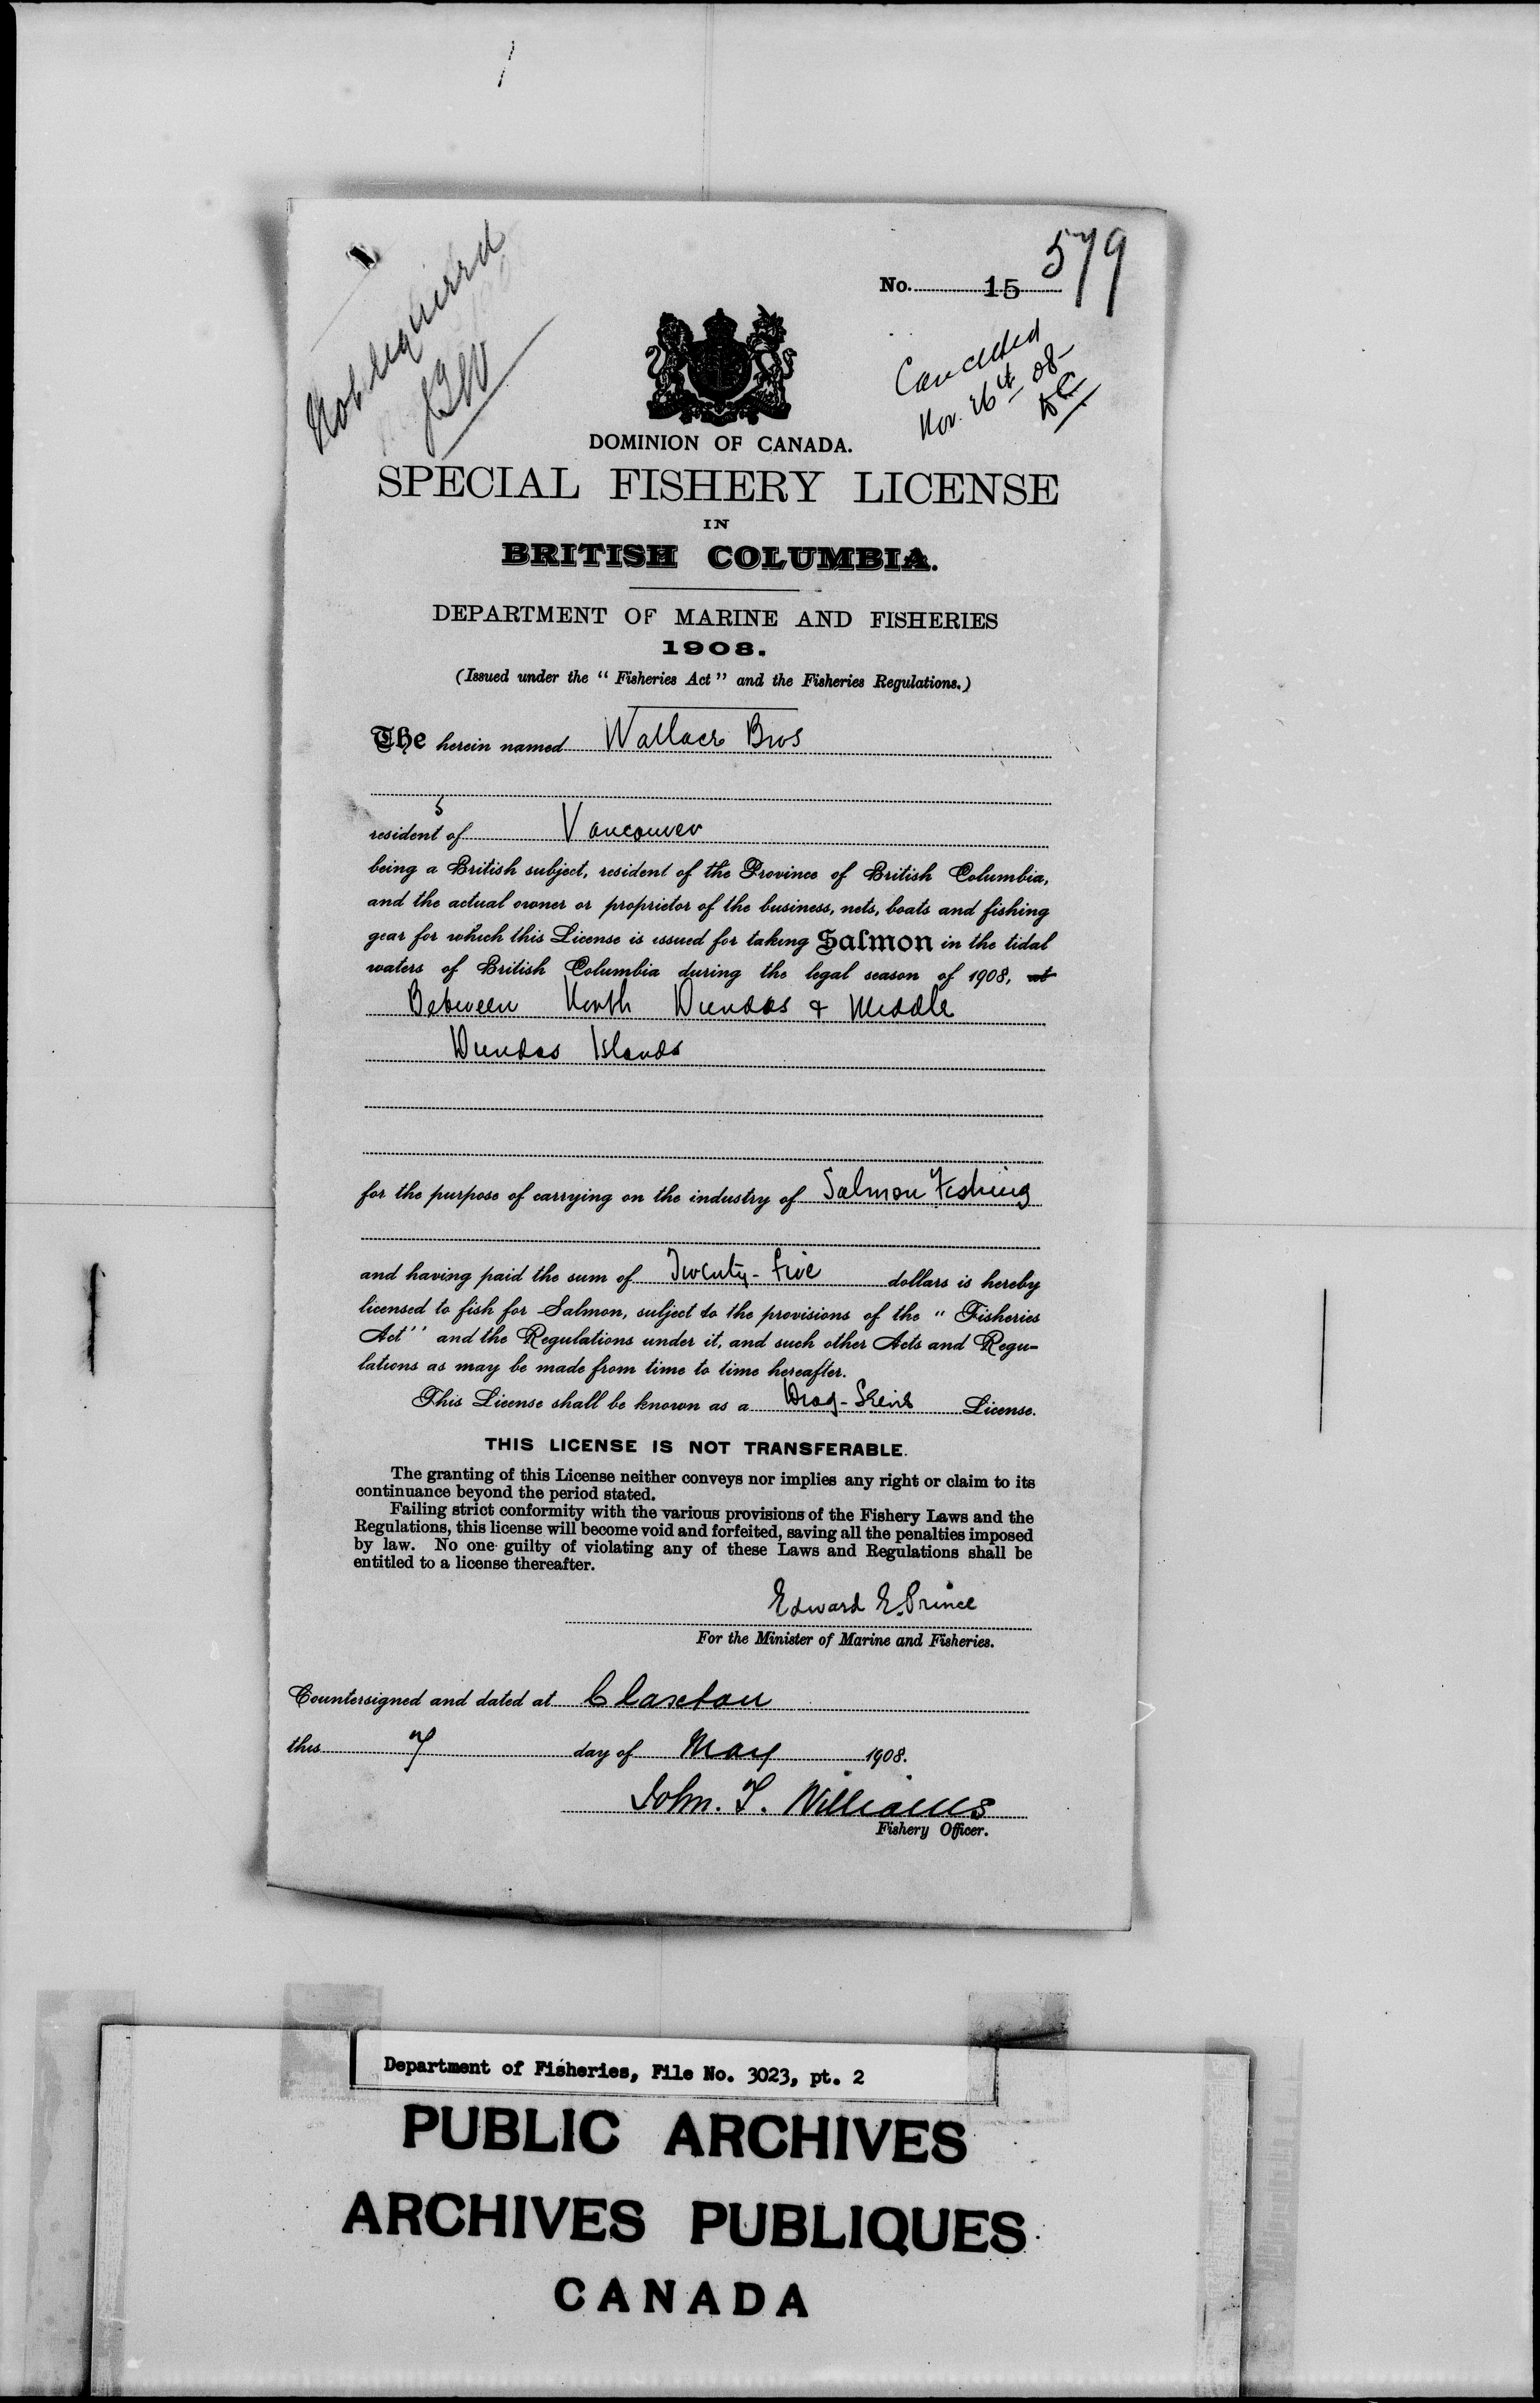 Not required
JBW
579
No. 15
Cancelled
Nov. 26th 08
DOMINION OF CANADA.
SPECIAL FISHERY LICENSE
IN
BRITISH COLUMBIA.
DEPARTMENT OF MARINE AND FISHERIES
1908.
(Issued under the " Fisheries Act " and the Fisheries Regulations.)
The herein named Wallace Bros
residents of Vancouver
being a British subject, resident of the Province of British Columbia,
and the actual owner or proprietor of the business, nets, boats and fishing
gear for which this License is issued for taking Salmon in the tidal
waters of British Columbia during the legal season of 1908, at
Between North Dundas & Middle
Dundas Islands
for the purpose of carrying on the industry of Salmon Fishing
and having paid the sum of Twenty-five dollars is hereby
licensed to fish for Salmon, subject to the provisions of the " Fisheries
Act " and the Regulations under it, and such other Acts and Regu-
lations as may be made from time to time hereafter.
This License shall be known as a Drag-Seine License.
THIS LICENSE IS NOT TRANSFERABLE.
The granting of this License neither conveys nor implies any right or claim to its
continuance beyond the period stated.
Failing strict conformity with the various provisions of the Fishery Laws and the
Regulations, this license will become void and forfeited, saving all the penalties imposed
by law. No one guilty of violating any of these Laws and Regulations shall be
entitled to a license thereafter.
Edward E. Prince
For the Minister of Marine and Fisheries.
Countersigned and dated at Claxton
this 7 day of May 1908.
John. T. Williams
Fishery Officer.
Department of Fisheries, File No. 3023, pt. 2
PUBLIC ARCHIVES
ARCHIVES PUBLIQUES
CANADA